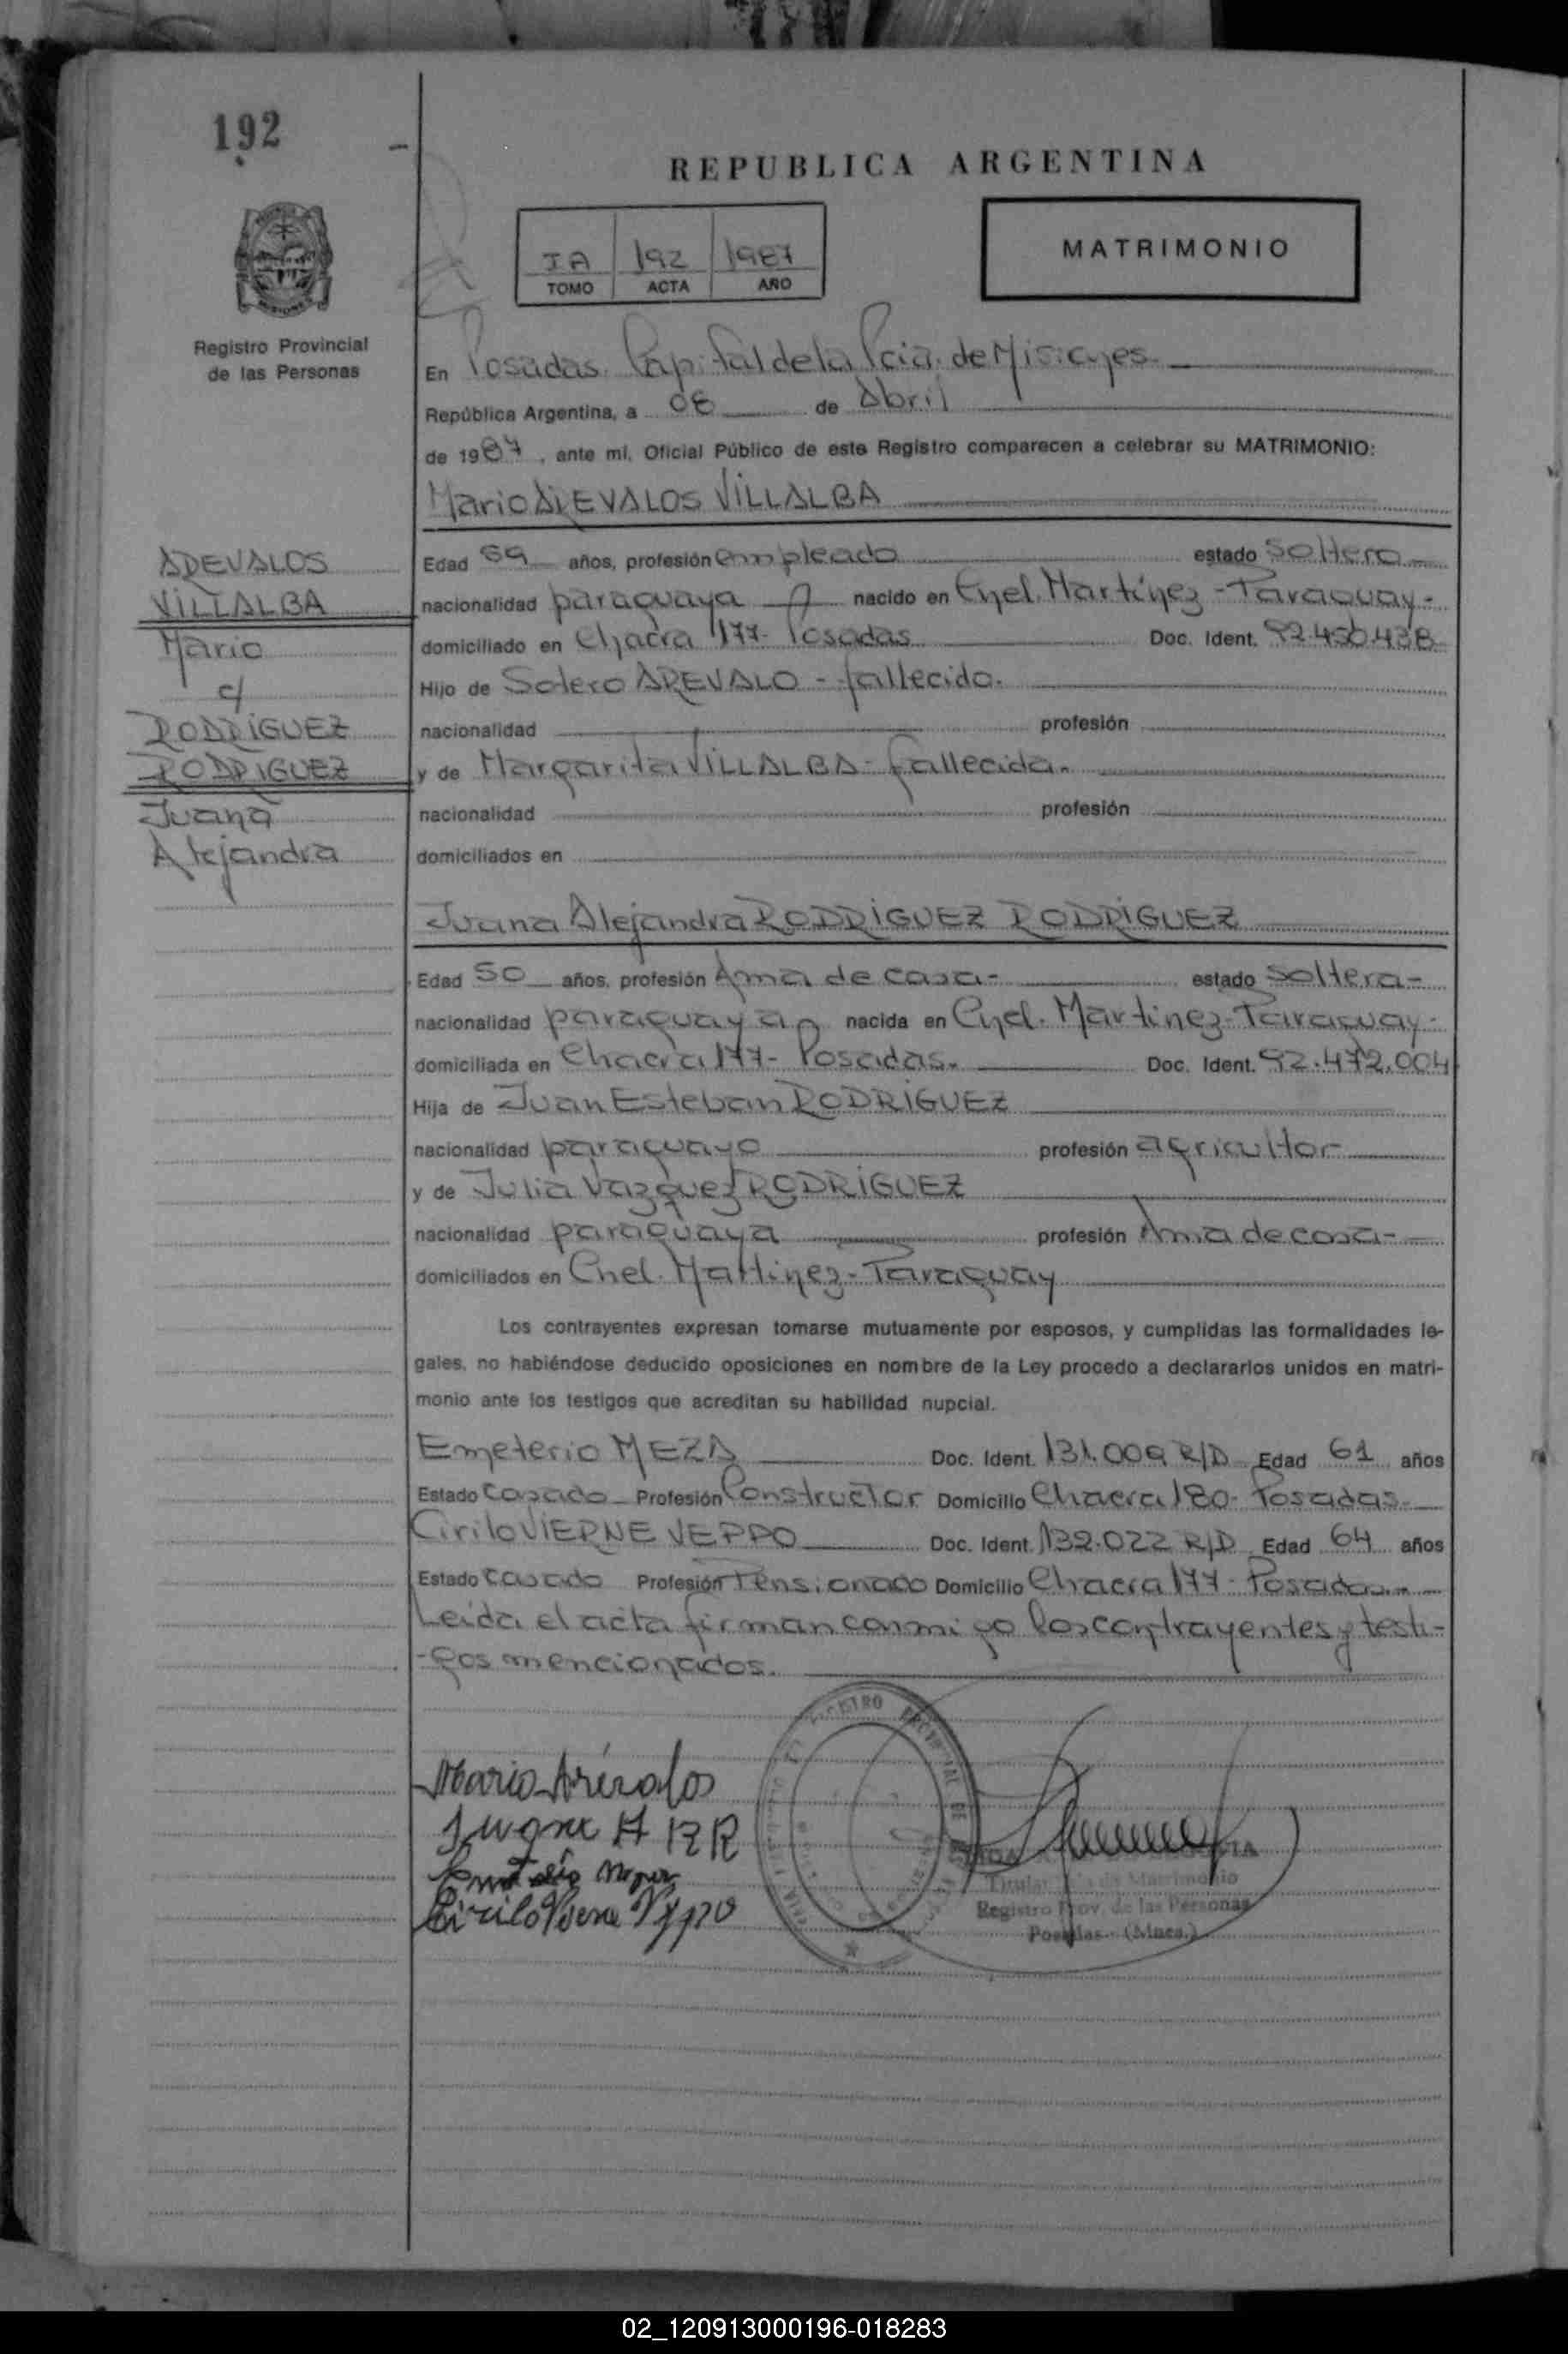 192
REPUBLICA ARGENTINA
IA 192 1987
TOMO ACTA AÑO
MATRIMONIO
Registro Provincial
de las Personas
En Posadas. Capital de la Pcia. de Misiones.
República Argentina, a 08 de Abril
de 1987, ante mi, Oficial Público de este Registro comparecen a celebrar su MATRIMONIO:
Mario AREVALOS VILLALBA
AREVALOS
VILLALBA
Mario
c/
RODRIGUEZ
RODRIGUEZ
Juana
Alejandra
Edad 59 años, profesión empleado estado Soltero
nacionalidad paraguaya nacido en Cnel. Martinez - Paraguay -
domiciliado en Chacra 177- Posadas Doc. Ident. 92.450.438
Hijo de Sotero AREVALO - fallecido.
nacionalidad profesión
y de Margarita VILLALBA - fallecida.
nacionalidad profesión
domiciliados en
Juana Alejandra RODRIGUEZ RODRIGUEZ
Edad 50 años, profesión Ama de casa - estado Soltera -
nacionalidad paraguaya nacida en Cnel. Martinez - Paraguay -
domiciliada en Chacra 177 - Posadas. Doc. Ident. 92.472.004
Hija de Juan Esteban RODRIGUEZ
nacionalidad paraguayo profesión agricultor
y de Julia Vazquez RODRIGUEZ
nacionalidad paraguaya profesión Ama de casa -
domiciliados en Cnel. Martinez - Paraguay
Los contrayentes expresan tomarse mutuamente por esposos, y cumplidas las formalidades le-
gales, no habiéndose deducido oposiciones en nombre de la Ley procedo a declararlos unidos en matri-
monio ante los testigos que acreditan su habilidad nupcial.
Emeterio MEZA Doc. Ident. 131.009 R/D Edad 61 años
Estado Casado Profesión Constructor Domicilio Chacra 180 - Posadas.
Cirilo VIERNE YEPPO Doc. Ident. 132.022 R/D Edad 64 años
Estado Casado Profesión Pensionado Domicilio Chacra 177 - Posadas.
Leida el acta firman conmigo los contrayentes y testi-
-gos mencionados.
Mario Arévalos
Juana A R R
Cirilo
Registro Prov. de las Personas
Posadas - (Mnes.)
02_120913000196-018283